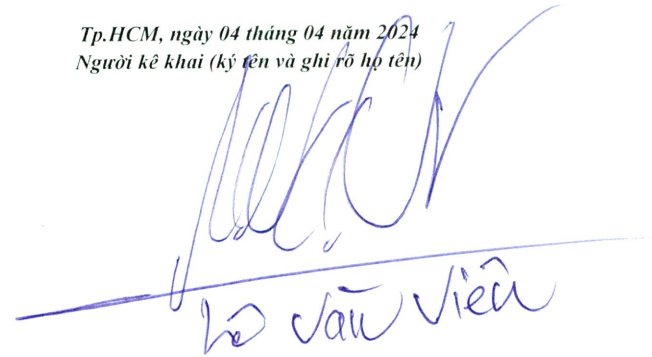 Tp.HCM, ngày 04 tháng 04 năm 2024
Người kê khai (ký tên và ghi rõ họ tên)
Văn Viên